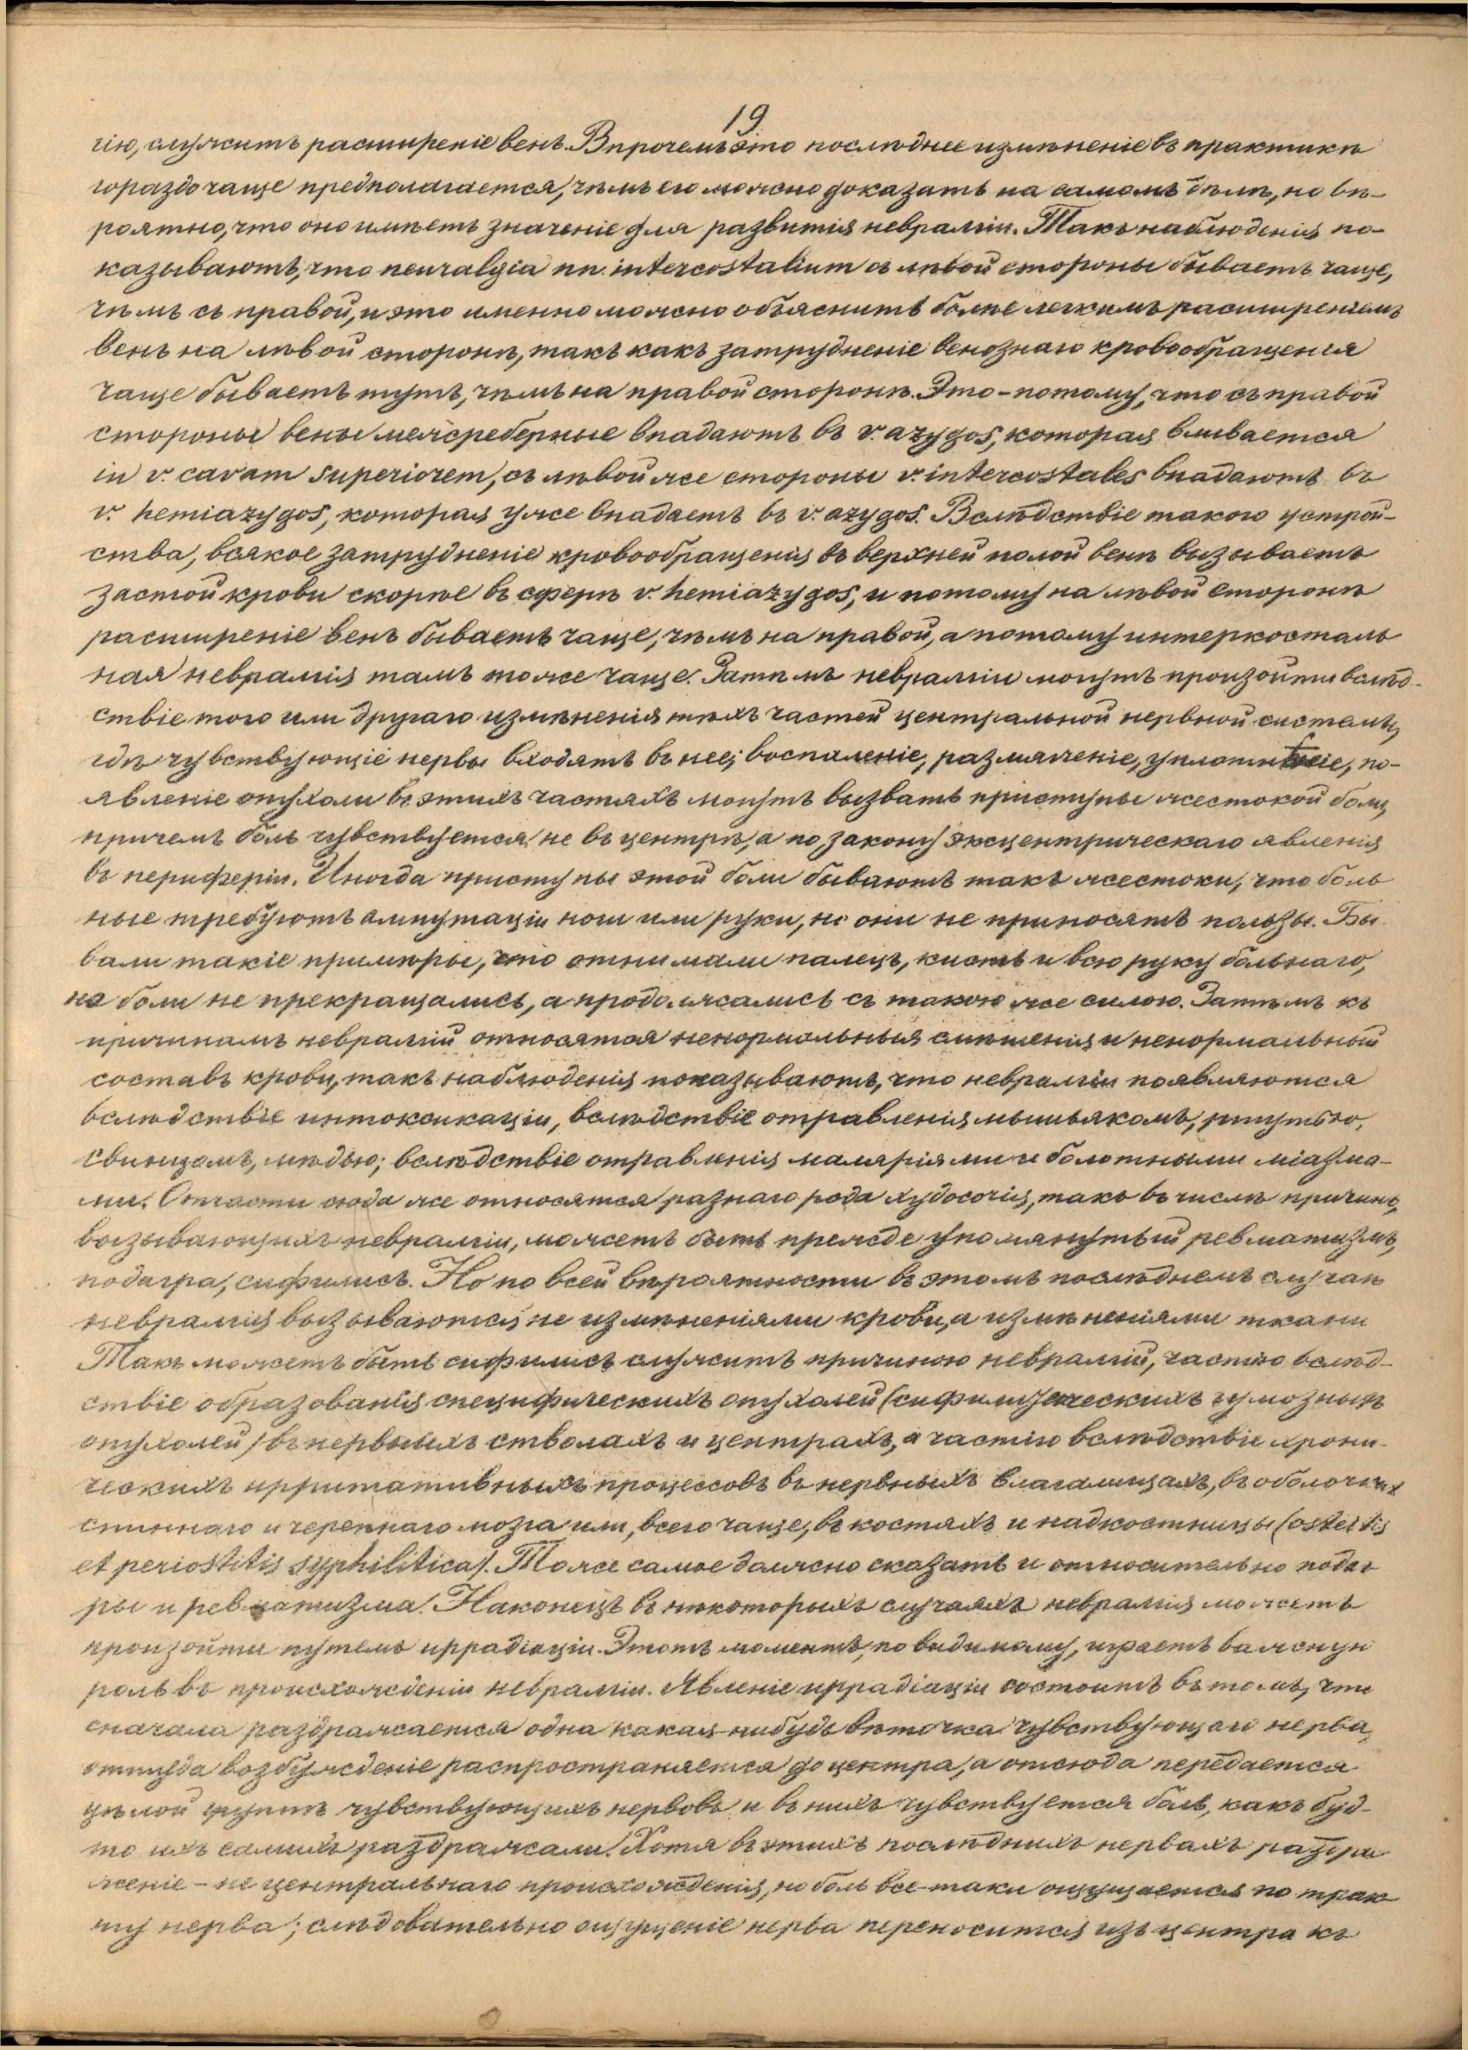 19.
гію, служитъ расширеніе венъ. Впрочемъ это послѣднее измѣненіе въ практикѣ
гораздо чаще предполагается, чѣмъ его можно доказать на самомъ дѣлѣ, но вѣ-
роятно, что оно имѣетъ значеніе для развитія невралгіи. Такъ наблюденія по-
казываютъ, что neuralgia nn. intercostalium съ лѣвой стороны бываетъ чаще,
чѣмъ съ правой, и это именно можно объяснить болѣе легкимъ расширеніемъ
венъ на лѣвой сторонѣ, такъ какъ затрудненіе венознаго кровообращенія
чаще бываетъ тутъ, чѣмъ на правой сторонѣ. Это – потому, что съ правой
стороны вены межреберные впадаютъ въ v. azygos, которая вливается
in v. cavam superiorem, съ лѣвой же стороны v. intercostales впадаютъ въ
v. hemiazygos, которая уже впадаетъ въ v. azygos. Вслѣдствіе такого устрой-
ства, всякое затрудненіе кровообращенія въ верхней полой венѣ вызываетъ
застой крови скорѣе въ сферѣ v. hemiazygos, и потому на лѣвой сторонѣ
расширеніе венъ бываетъ чаще, чѣмъ на правой, а потому интеркосталь
ная невралгія тамъ тоже чаще. Затѣмъ невралгіи могутъ произойти вслѣд-
ствіе того или другаго измѣненія тѣхъ частей центральной нервной системы,
гдѣ чувствующіе нервы входятъ въ нее; воспаленіе, размягченіе, уплотнѣніе, по-
явленіе опухоли въ этихъ частяхъ могутъ вызвать приступы жестокой боли,
причемъ боль чувствуется не въ центрѣ, а по закону эксцентрическаго явленія
въ периферіи. Иногда приступы этой боли бываютъ такъ жестоки, что боль
ные требуютъ ампутаціи ноги или руки, но они не приносятъ пользы. Бы-
вали такіе примѣры, что отнимали палецъ, кисть и всю руку больнаго,
но боли не прекращались, а продолжались съ такою же силою. Затѣмъ къ
причинамъ невралгій относятся ненормальныя смѣшенія и ненормальный
составъ крови, такъ наблюденія показываютъ, что невралгіи появляются
вслѣдствіе интоксикаціи, вслѣдствіе отравленія мышьякомъ, ртутью,
свинцомъ, мѣдью; вслѣдствіе отравленія маляріями и болотными міазма-
ми. Отчасти сюда же относятся разнаго рода худосочія, такъ въ числѣ причинъ,
вызывающихъ невралгіи, можетъ быть прежде упомянутый ревматизмъ,
подагра, сифилисъ. Но по всей вѣроятности въ этомъ послѣднемъ случаѣ
невралгія вызываются не измѣненіями крови, а измѣненіями ткани
Такъ можетъ быть сифилисъ служитъ причиною невралгій, частію вслѣд-
ствіе образованія специфическихъ опухолей (сифилитическихъ гумозныхъ
опухолей) въ нервныхъ стволахъ и центрахъ, а частію вслѣдствіе хрони-
ческихъ ирритативныхъ процессовъ въ нервныхъ влагалищахъ, въ оболочках
спиннаго и черепнаго мозга или, всего чаще, въ костяхъ и надкостницы (osteitis
et periostitis syphilitica). Тоже самое должно сказать и относительно подаг
ры и ревматизма. Наконецъ въ нѣкоторыхъ случаяхъ невралгія можетъ
произойти путемъ иррадіаціи. Этотъ моментъ, по видимому, играетъ важную
роль въ происхожденіи невралгіи. Явленіе иррадіаціи состоитъ въ томъ, что
сначала раздражается одна какая-нибудь вѣточка чувствующаго нерва,
откуда возбужденіе распространяется до центра, а отсюда передается
цѣлой группѣ чувствующихъ нервовъ и въ нихъ чувствуется боль, какъ буд-
то ихъ самихъ раздражали. Хотя въ этихъ послѣднихъ нервахъ раздра
женіе – не центральнаго происхожденія, но боль все-таки ощущается по трак
ту нерва; слѣдовательно ощущеніе нерва переносится изъ центра къ